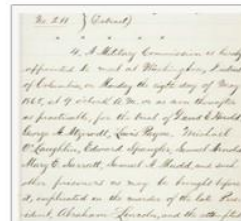 No. 211 } (Extract)
" " " " "
4. A Military Commission is hereby
appointed to meet at Washington, District
of Columbia, on Monday the eight day of May
1865, at 9 o'clock A.M. or as soon thereafter
as practicable, for the trial of David E. Herold,
George A. Atzerodt, Lewis Payne, Michael
O'Laughlin, Edward Spangler, Samuel Arnold
Mary E. Surratt, Samuel A. Mudd, and such
other prisoners as may be brought before
it, implicated in the murder of the late Pres-
ident, Abraham Lincoln, and the